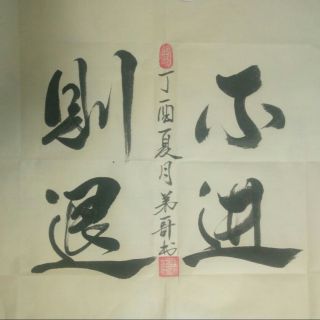 不进
则退
丁酉夏月弟哥书